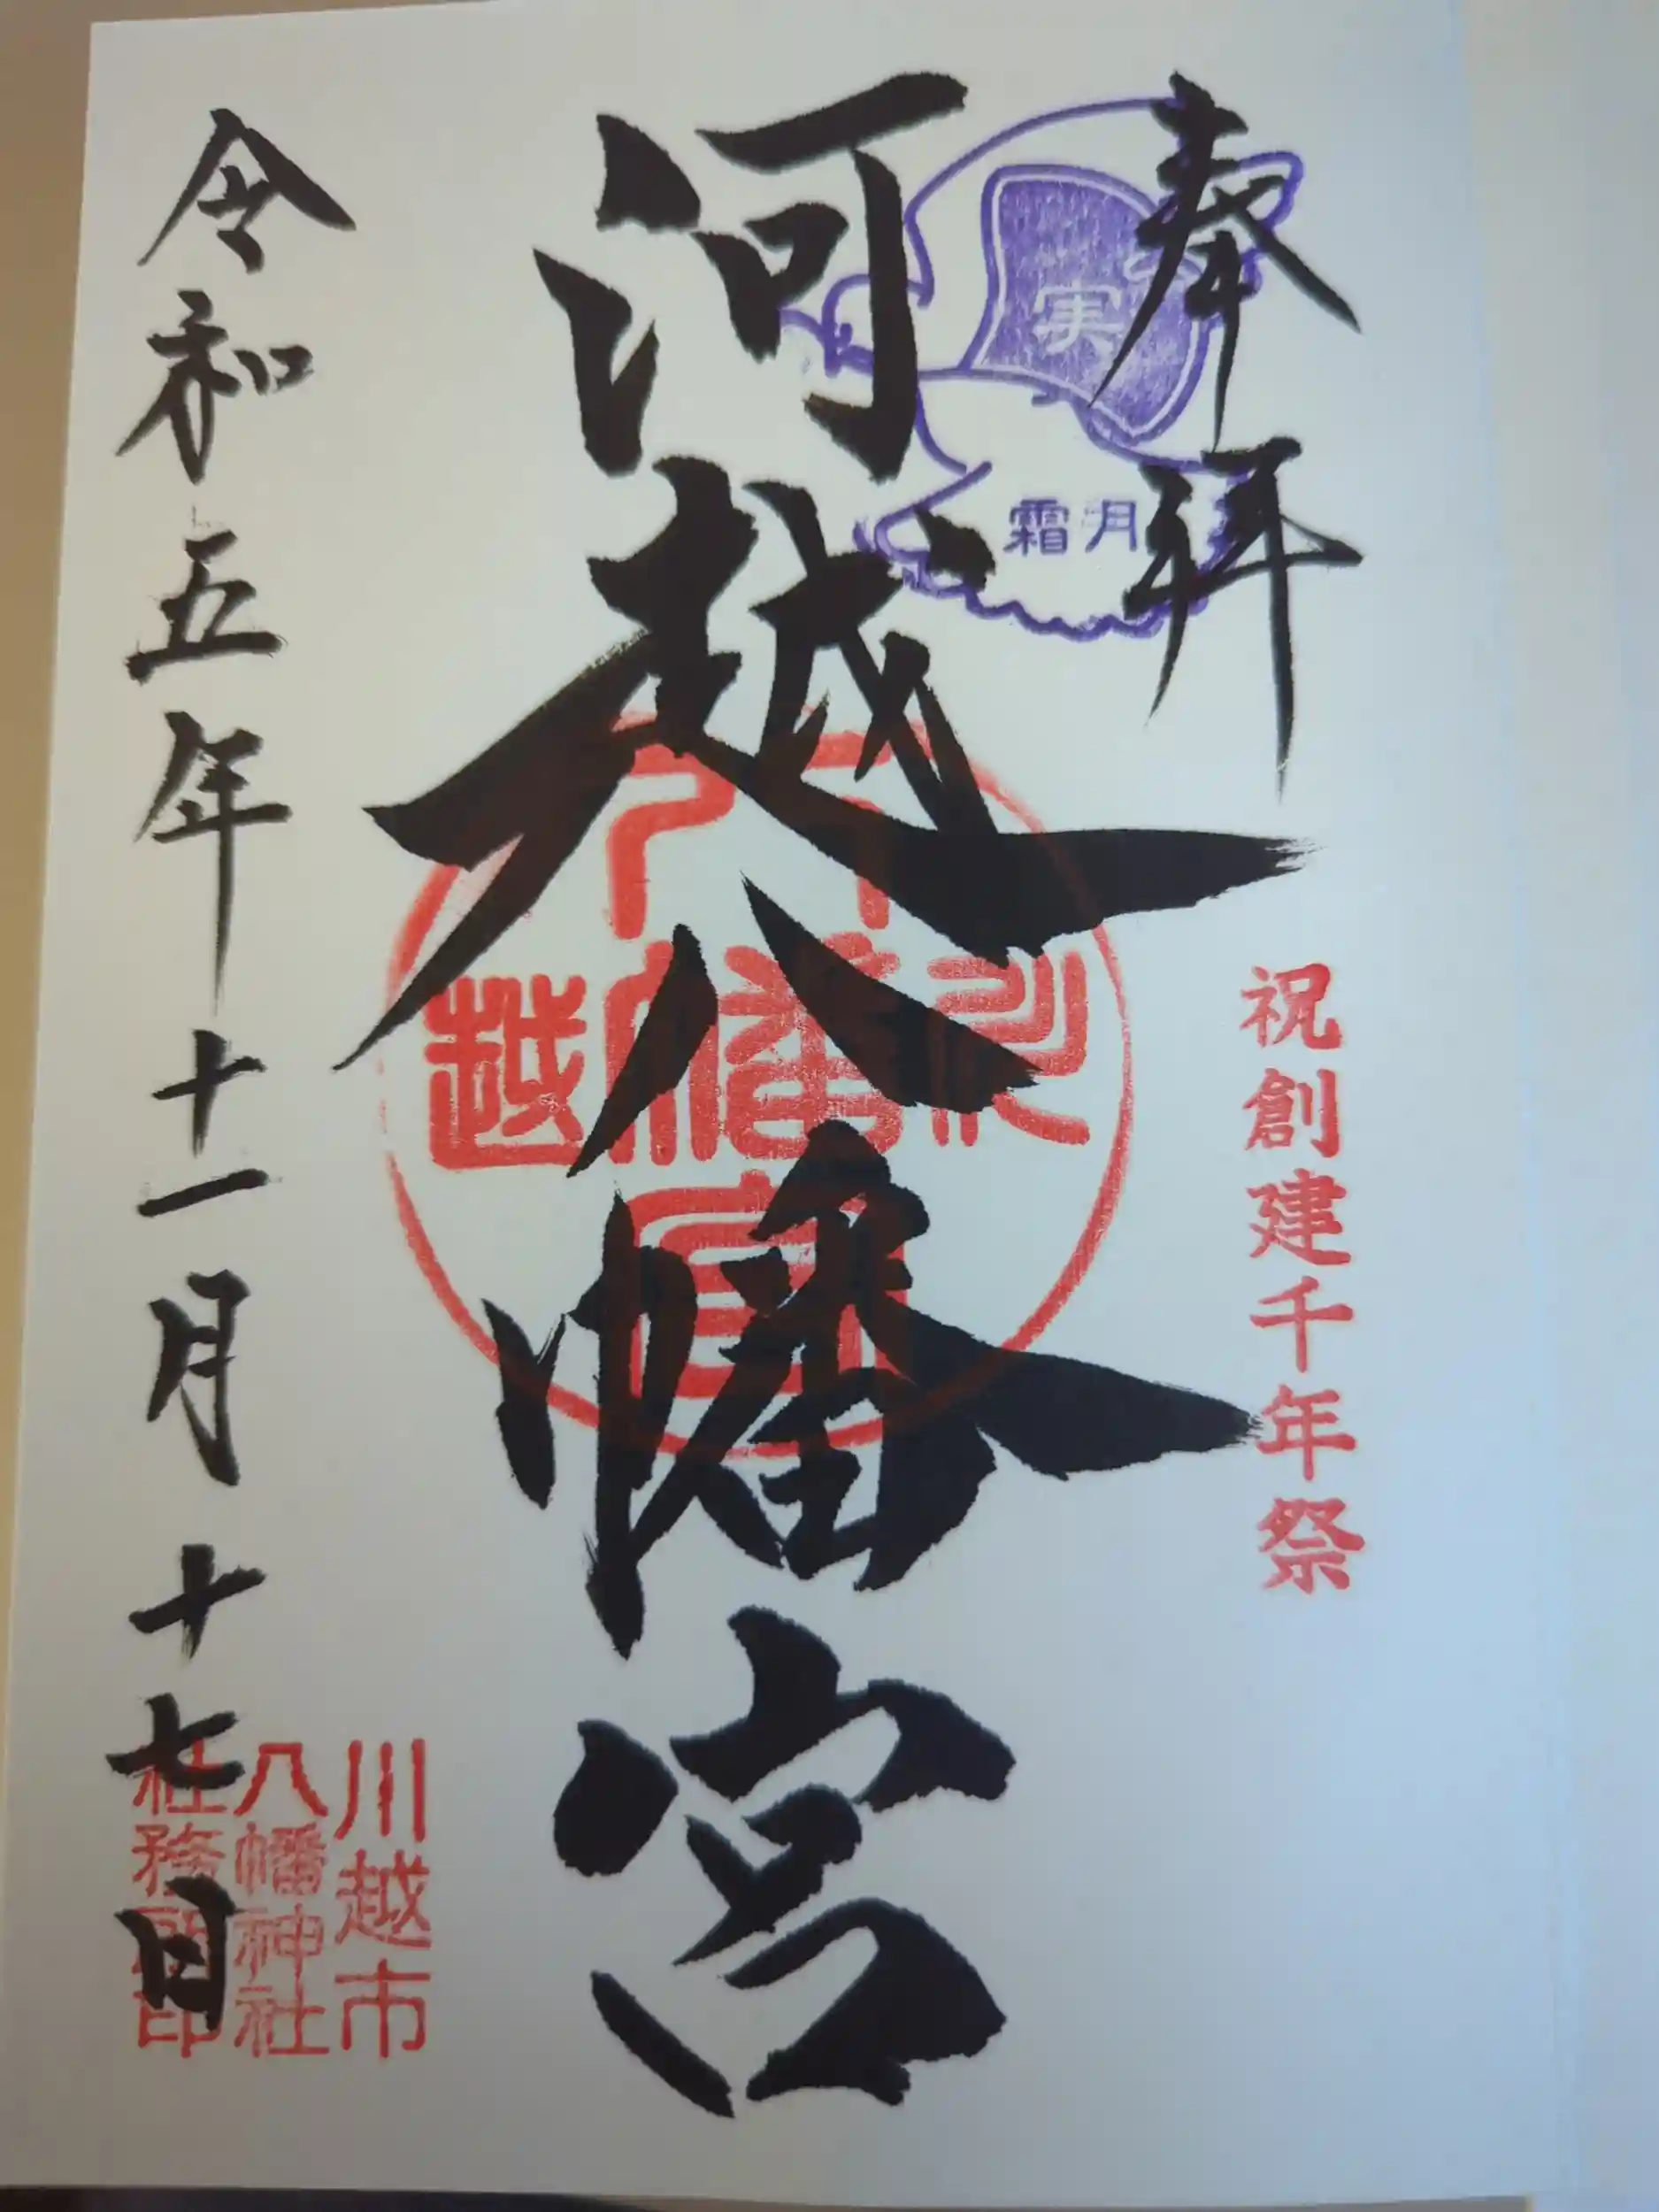 奉拝
実
霜月
祝創建千年祭
河越八幡宮
八幡宮
越
川越市
八幡神社
社務所印
令和五年十一月十七日